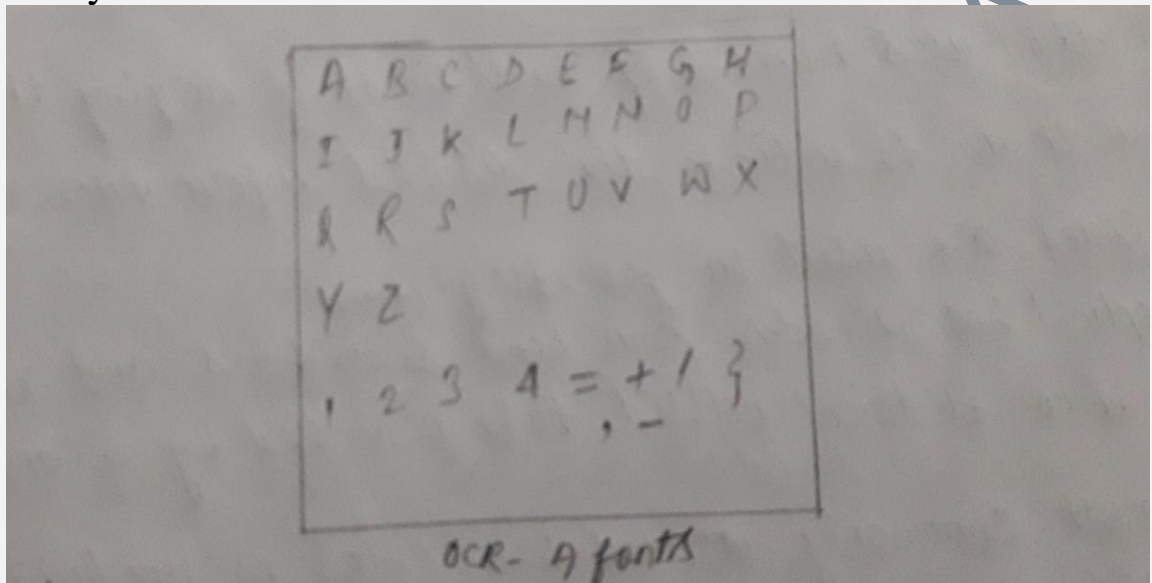 A B C D E F G H
I J K L M N O P
Q R S T U V W X
Y Z
1 2 3 4 = + / }
, -
OCR- A fonts